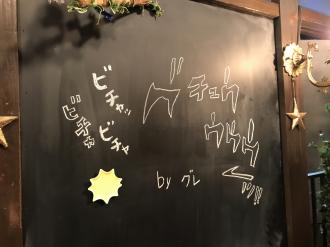 ビチャッ
ビチャ
ビチャ
ヴヂュウ
ウウウ
ッ!!
by グレ